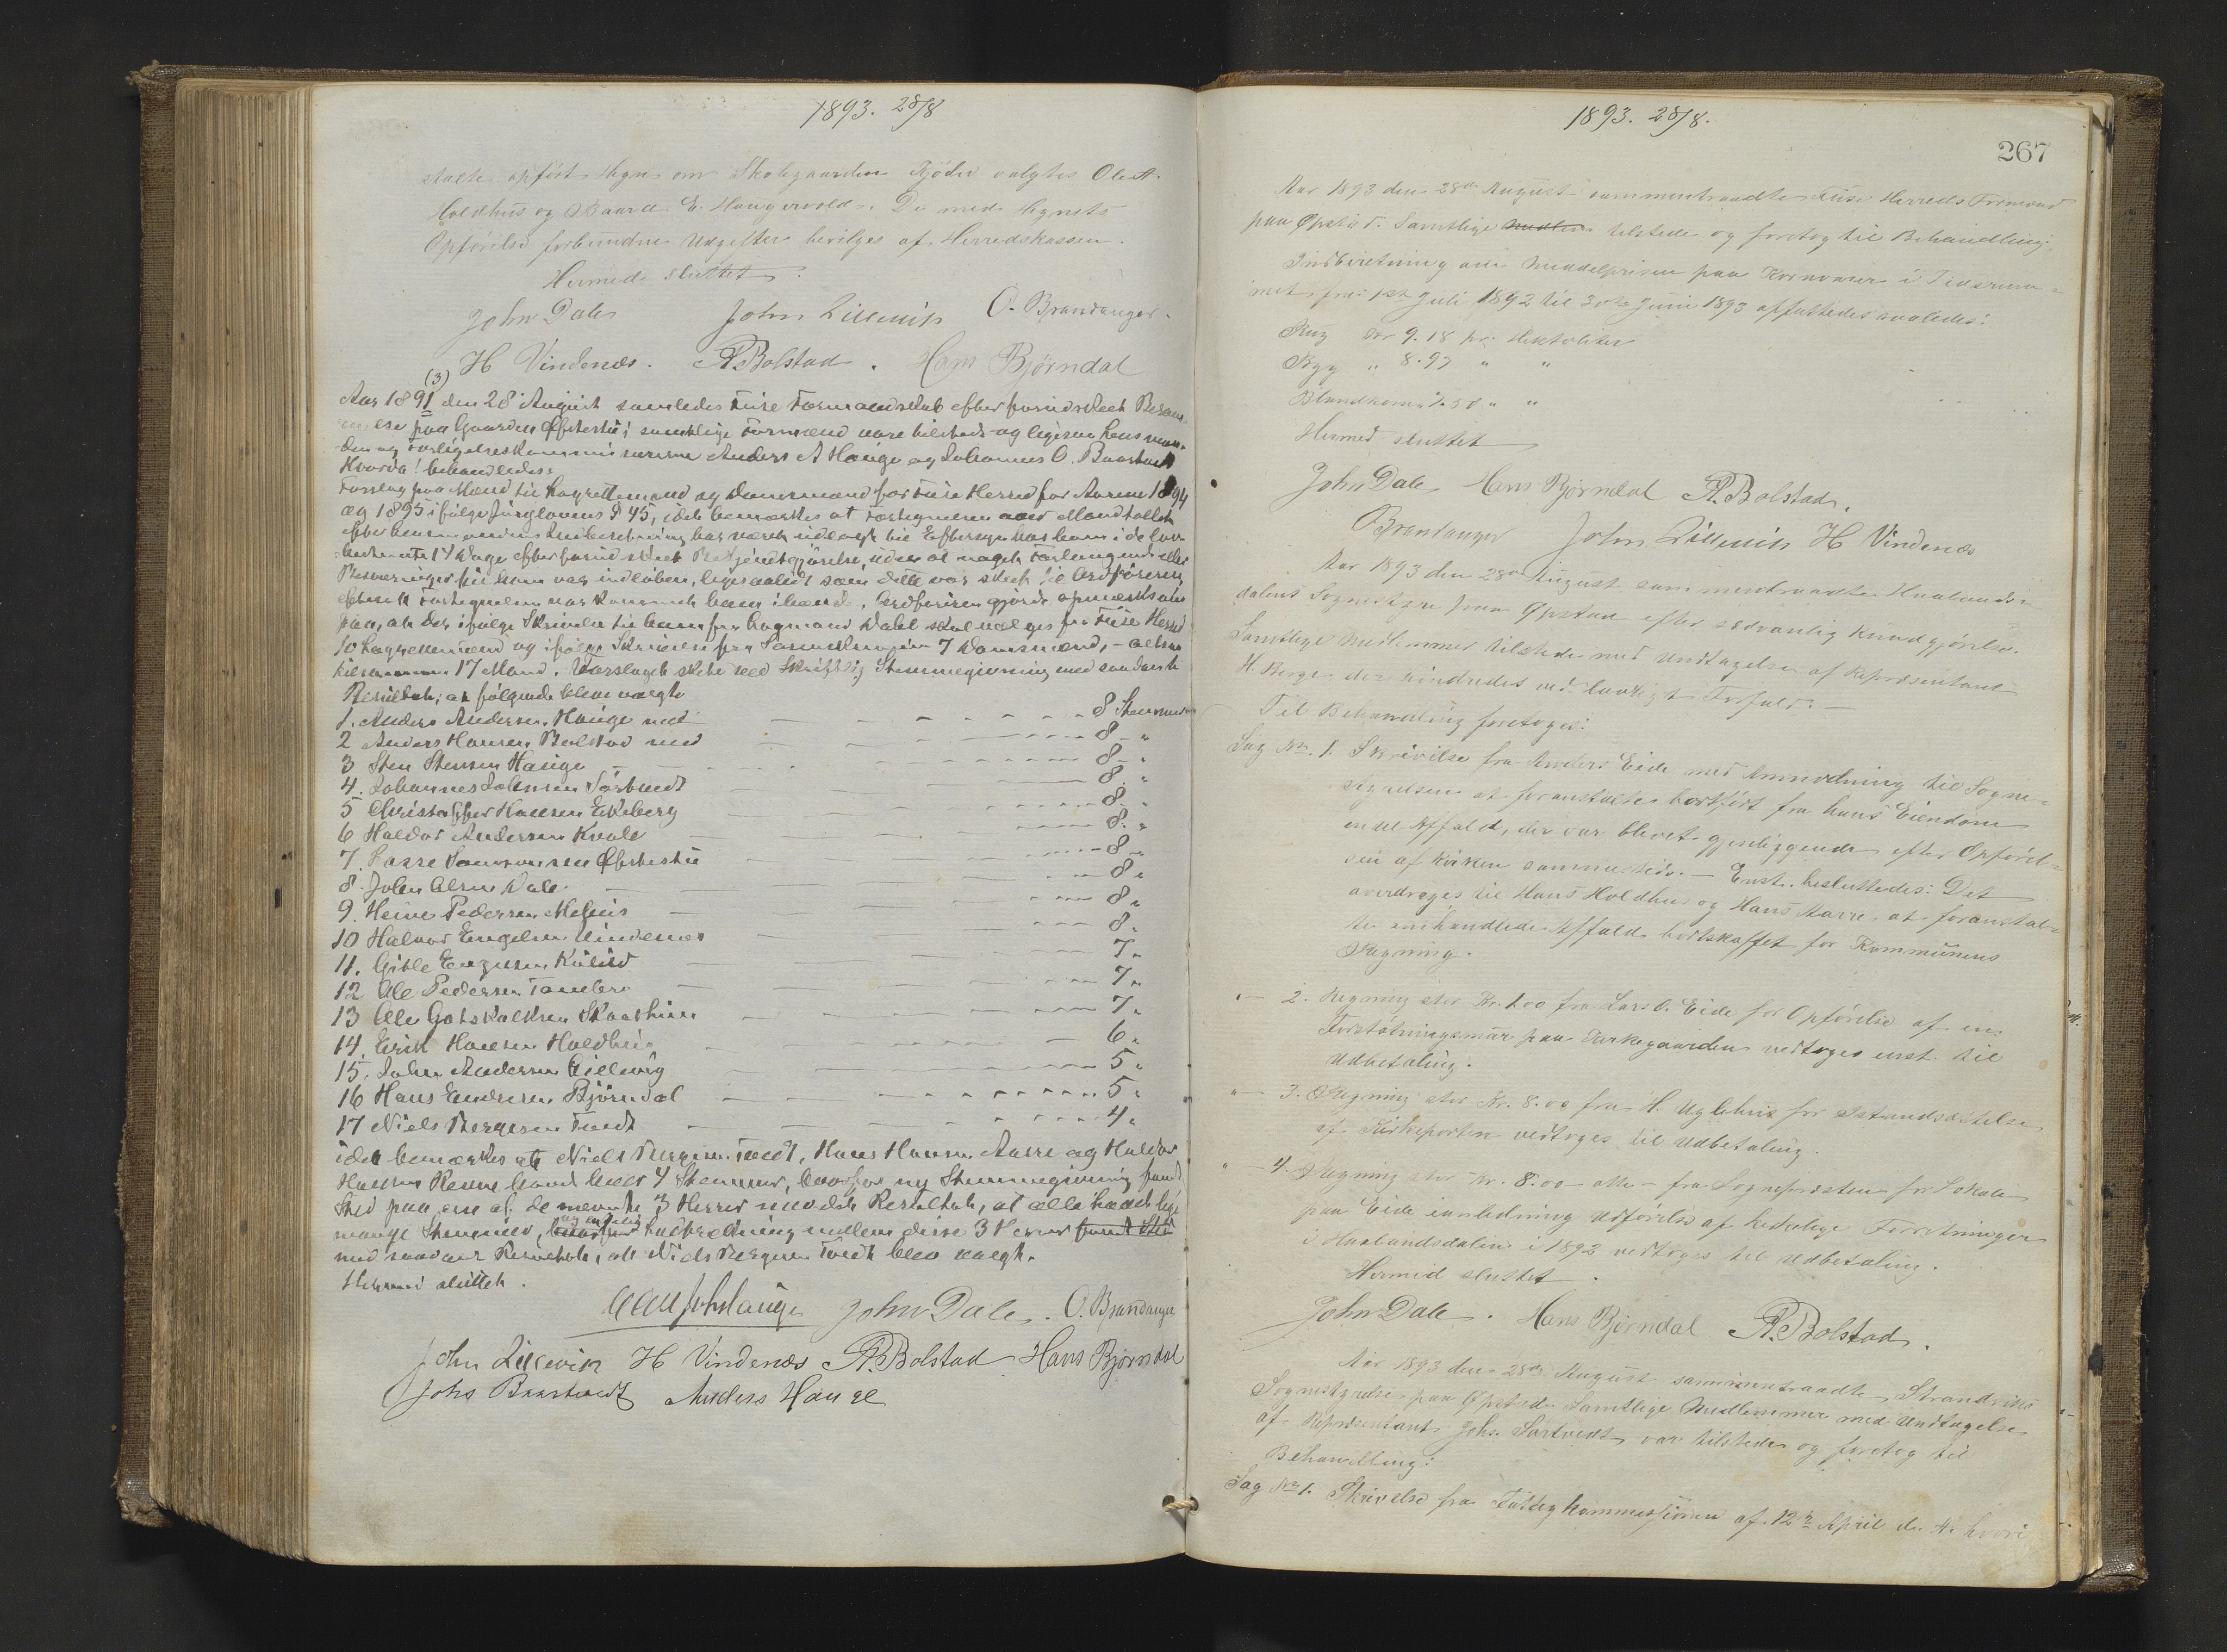 1893. 28/8
stalte opført Hegn om Skolegaarden Gjöder valgtes Ole A.
Holdhus og Baard E. Haugervold. De med Hegnets
Opförelse forbundne Udgifter bevilges af Herredskassen.
Hermed sluttet.
John Dale John Lillevik O. Brandanger
H Vindenæs. A. Bolstad. Hans Bjørndal
(3)
Aar 1891 den 28 August samledes Fuse Formandskab efter forudskeet Beram-
melse paa Gaarden Øfstestü; samtlige Formænd vare tilstede og ligesaa Lensman-
den og Forligelseskommissærerne Anders A Hauge og Johannes O. Baartvedt
Hvorda! behandledes:
Forslag paa Mænd til Lagrettemænd og Domsmænd for Fuse Herred for Aarene 1894
og 1895 ifølge Jurylovens § 45, idet bemærkes at Fortegnelsen over Mandtallet
efter Lensmandens har været udlagt til Eftersyn hos ham i de lov-
bestemte 14 Dage efter forudskeet Bekjendtgjörelse, uden at noget Forlangende eller
Besværinger til ham var indløben, ligesaalidt som dette var skeet til Ordföreren
efterat Fortegnelsen var kommet ham ihænde. Ordföreren gjorde opmærksom
paa, at der ifølge Skrivelse til ham fra Lagmand Dahl skal vælges fra Fuse Herred
10 Lagrettemænd og ifølge Skrivelse fra Sorenskriveren 7 Domsmænd, - altsaa
tilsammen 17 Mand. Forslaget skete ved Skriftlig Stemmegivning med saadant
Resultat; at følgende bleve valgte
1. Anders Andersen Hauge med 8 Stemmer
2 Anders Hansen Bolstad med 8 "
3 Sten Stensen Hauge 8 "
4. Johannes Johnsen Sörtvedt 8 "
5 Christopher Hansen Ekeberg 8 "
6 Haldor Andersen Kvale 8. "
7. Lasse Øfstestü 8 "
8. John Olsen Dale 8 "
9. Heine Pedersen Mehus 8 "
10 Halvor Engelsen Vindenes 8 "
11. Gitle 7 "
12 Ole Pedersen 7 "
13 Ole Gotskalksen Skaathun 7 "
14. Erik Hansen Holdhus 6 "
15. John Andersen Lillevig 5 "
16 Hans Endresen Björndal 5 "
17 Niels Bergesen Tvedt 4 "
idet bemærkes at Niels Bergesen Tvedt, Hans Hansen Aarre og Haldor
Hansen havde hver 4 Stemmer, hvorfor ny Stemmegivning fandt
Sted paa en af de nævnte 3 Herrer med det Resultat, at alle havde lige
mange Stemmer, og endelig Lodtrækning mellem disse 3 Herrer fandt Sted
med saadant Resultat, at Niels Bergesen Tvedt blev valgt.
Hermed sluttet.
John Dale. O. Brandanger
John Lillevik H Vindenæs A. Bolstad Hans Bjørndal
Johs Baartvedt Anders Hauge
1893. 28/8.
267
Aar 1893 den 28de August sammentraadte Fuse Herreds Formænd
paa Øpstad. Samtlige tilstede og foretog til Behandling:
Indberetning om Middelprisen paa Kornvarer i Tidsrum-
met fra 1ste Juli 1892 til 30te Juni 1893 opfattedes saaledes:
Rug Kr 9.18 pr. Hektoliter
Byg " 8.97 " "
Blandkorn " 7.50 " "
Hermed sluttet
John Dale Hans Bjørndal A. Bolstad.
Brandanger John Lillevik H Vindenæs
Aar 1893 den 28de August sammentraadte Haalands-
dalens Sognestyre paa Øpstad efter sædvanlig Kundgjörelse.
Samtlige Medlemmer tilstede med Undtagelse af Repræsentant
H. Berge der hindredes ved lovligt Forfald. -
Til Behandling foretoges:
Sag No. 1. Skrivelse fra Anders Eide med Anmodning til Sogne-
styrelsen at foranstalte bortført fra hans Eiendom
endel Affald, der var blevet gjenliggende efter Opförel-
sen af Kirken sammesteds. - Enst. besluttedes: Det
overdrages til Hans Holdhus og Hans Aarre at foranstal-
te omhandlede Affald bortskaffet for Kommunens
Regning.
" - 2. Regning stor Kr. 1.00 fra Lars O. Eide for Opførelse af en
Forstötningsmur paa Kirkegaarden vedtoges enst. til
Udbetaling.
" - 3. Regning stor Kr. 8.00 fra H. Uglehus for Istandsættelse
af Kirkeporten vedtoges til Udbetaling.
" - 4. Regning stor Kr. 8.00 - otte - fra Sognepræsten for Lokale
paa Eide i anledning Udførelse af kirkelige Forretninger
i Haalandsdalen i 1892 vedtoges til Udbetaling.
Hermed sluttet.
John Dale. Hans Bjørndal A. Bolstad.
Aar 1893 den 28de August sammentraadte Strandviks
Sognestyrelse paa Øpstad. Samtlige Medlemmer med Undtagelse
af Repræsentant Johs. Sørtvedt var tilstede og foretog til
Behandling:
Sag No 1. Skrivelse fra Fattigkommissionen af 12te April d. A. hvori